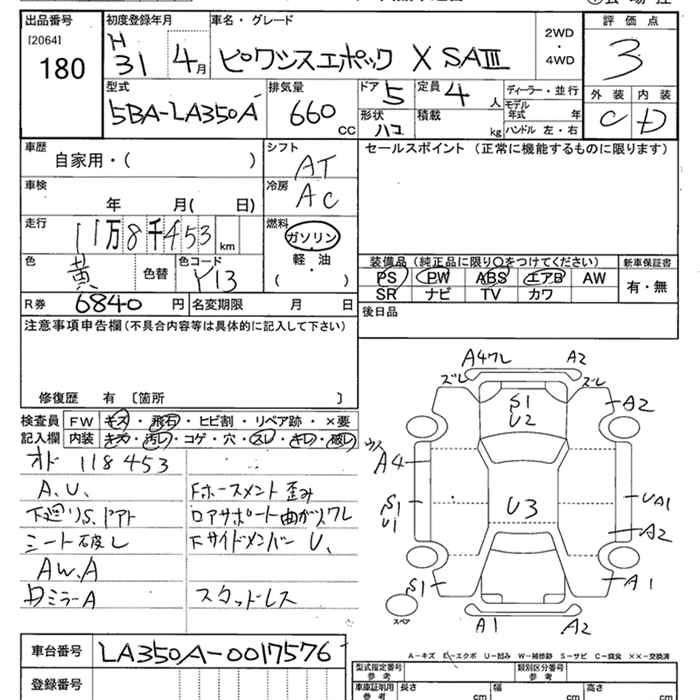 出品番号 初度登録年月 車名・グレード 評価点
[2064] 180
H31 4月 ピクシスエポック X SAⅢ 2WD・4WD 3
型式 排気量 ドア 5 定員 4人 ディーラー・並行
5BA-LA350A 660 CC
形状 ハコ 積載 kg モデル年式 年 ハンドル 左・右
外装 内装
C D
車歴 自家用・( ) シフト AT
セールスポイント (正常に機能するものに限ります)
車検 年 月( 日) 冷房 AC
走行 11万8千453km 燃料 ガソリン・軽油・( )
色 黄 色替 色コード Y13
装備品(純正品に限り○をつけてください) 新車保証書
PS PW ABS エアB AW 有・無
SR ナビ TV カワ
R券 6840円 名変期限 月 日
後日品
注意事項申告欄(不具合内容等は具体的に記入して下さい)
修復歴 有 〔箇所 〕
検査員記入欄
FW キズ・飛石・ヒビ割・リペア跡・×要
内装 キズ・汚レ・コゲ・穴・スレ・キレ・破レ
オド 118453
A.U.
下廻りS.ドアト
シート破レ
AW.A
Dミラー A
Fホースメント歪み
ロアサポート曲がりワレ
Fサイドメンバー U.
スタッドレス
A4ワレ A2
ズレ ズレ
S1 U2
A2
A4
S1 U1
U3
UA1
A2
S1
A1
スペア
A1 A2
A-キズ E-エクボ U-凹み W-補修跡 S-サビ C-腐食 ××-交換済
車台番号 LA350A-0017576
登録番号
型式指定番号 参考 類別区分番号 参考
車庫証明用 参考 長さ cm 幅 cm 高さ cm